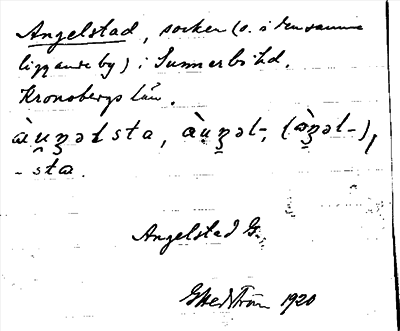 Angelstad, socken (o. i densamma
liggande by) i Sunnerbo hd.
Kronobergs län.
àu̯ȥəlsta, àu̯ȥəl-, (àȥəl-),
-sta.
Angelstad G.
1920